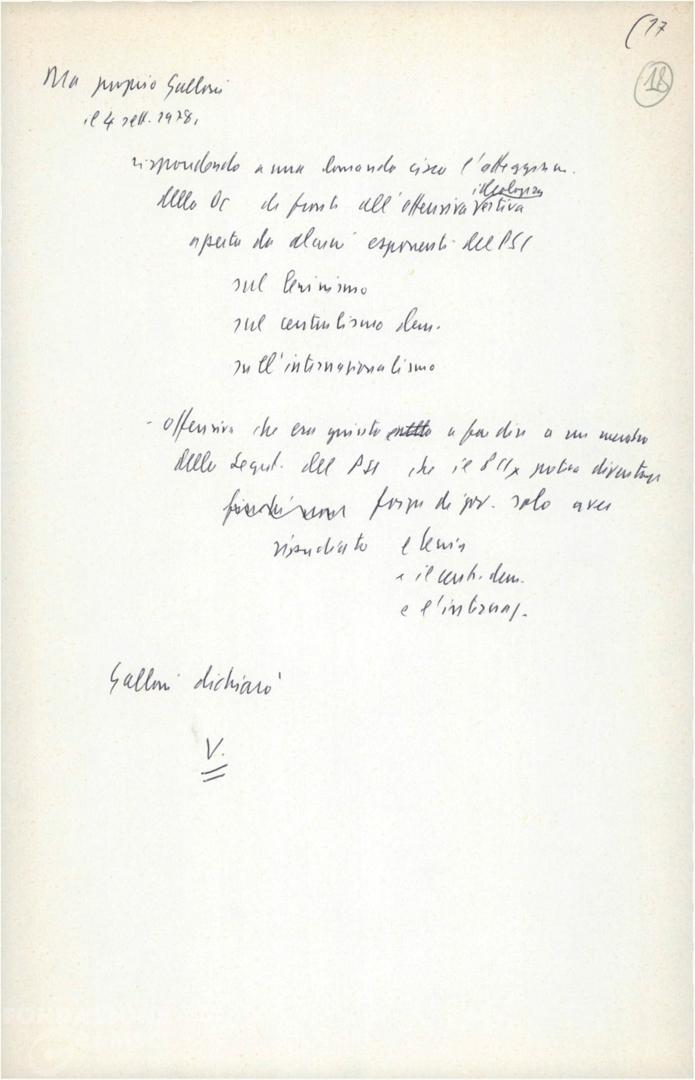 (17
18
Ma proprio Galloni
il 4 sett. 1978,
rispondendo a una domanda circa l'atteggiam.
ideologica
della Dc di fronte all'offensiva
aperta da alcuni esponenti del PSI
sul leninismo
sul centralismo dem.
sull'internazionalismo
- offensiva che era giunta a far dire a un membro
della Segret. del PSI che il PCI poteva diventare
forza di gov. solo aver
ripudiato e Lenin
e il centr. dem.
e l'internaz.
Galloni dichiarò
V.